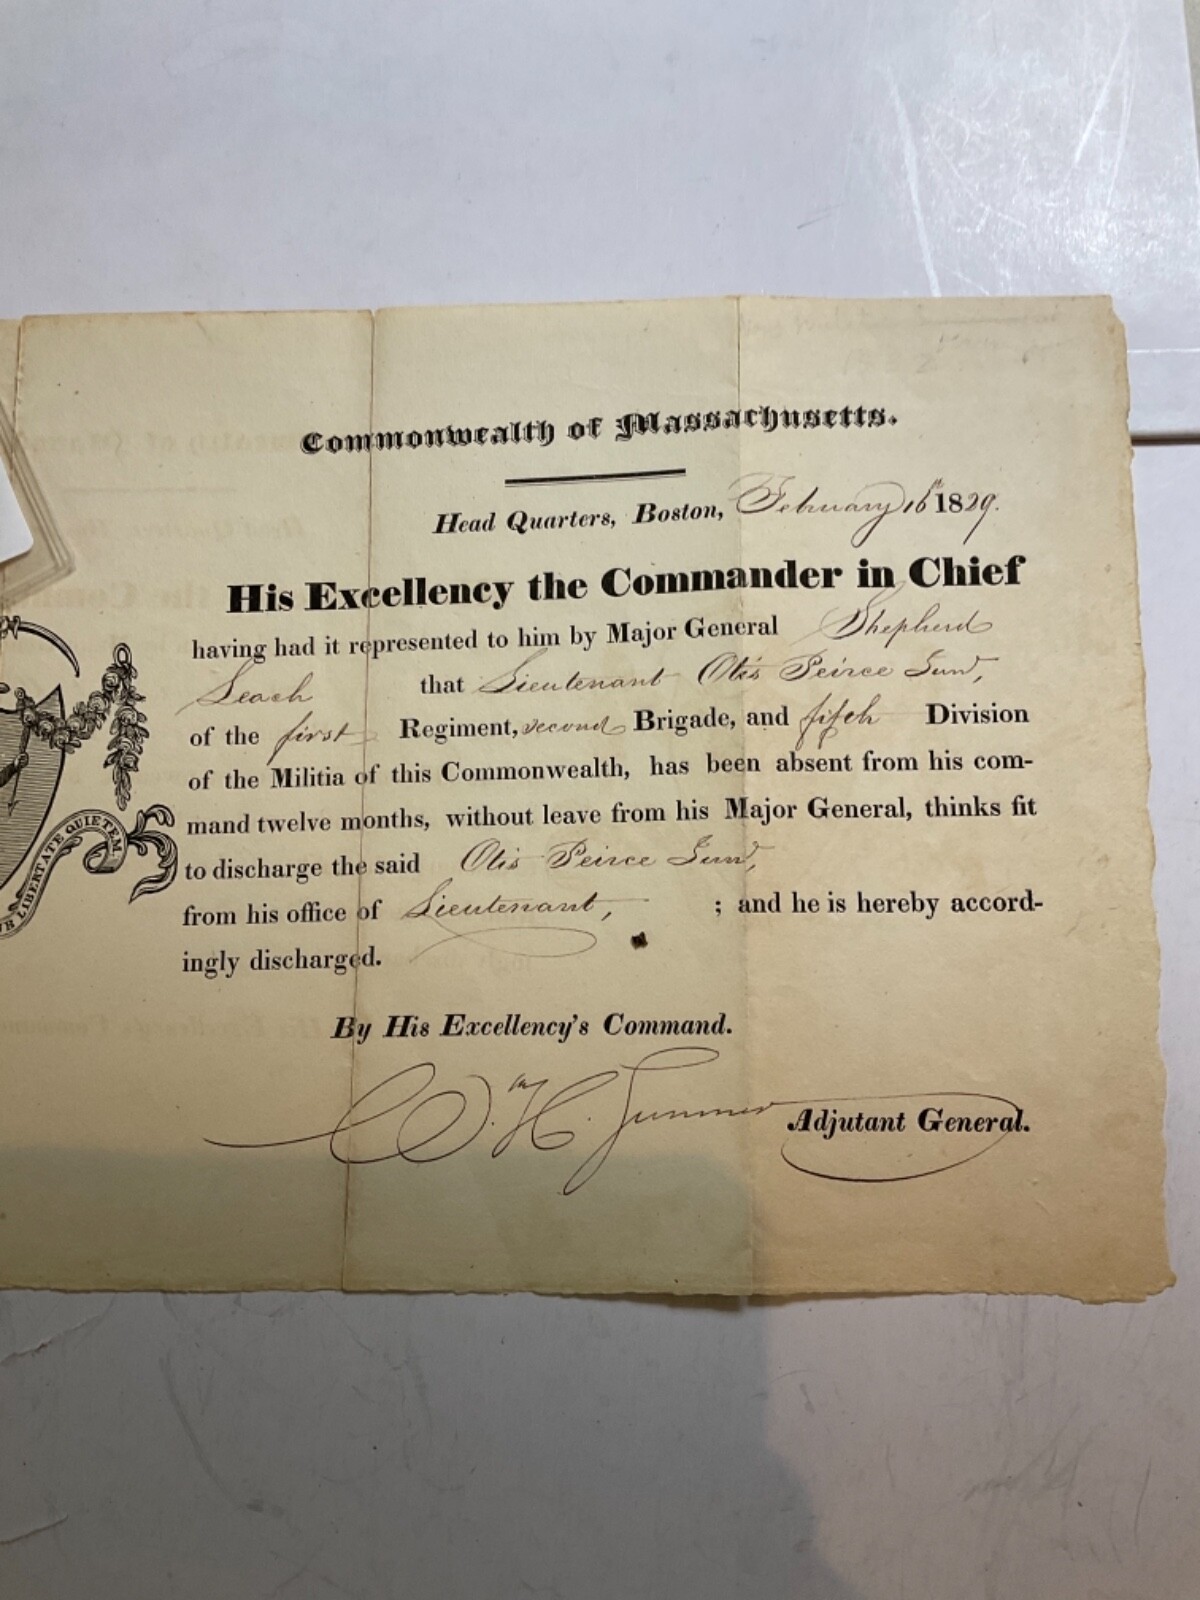 Commonwealth of Massachusetts.
Head Quarters, Boston, February 16th 1829.
His Excellency the Commander in Chief
having had it represented to him by Major General Shepherd
Leach that Lieutenant Otis Peirce Junr,
of the first Regiment, second Brigade, and fifth Division
of the Militia of this Commonwealth, has been absent from his com-
mand twelve months, without leave from his Major General, thinks fit
to discharge the said Otis Peirce Junr,
from his office of Lieutenant, ; and he is hereby accord-
ingly discharged.
By His Excellency's Command.
Wm H. Sumner Adjutant General.
LIBERTATE QUIETEM.